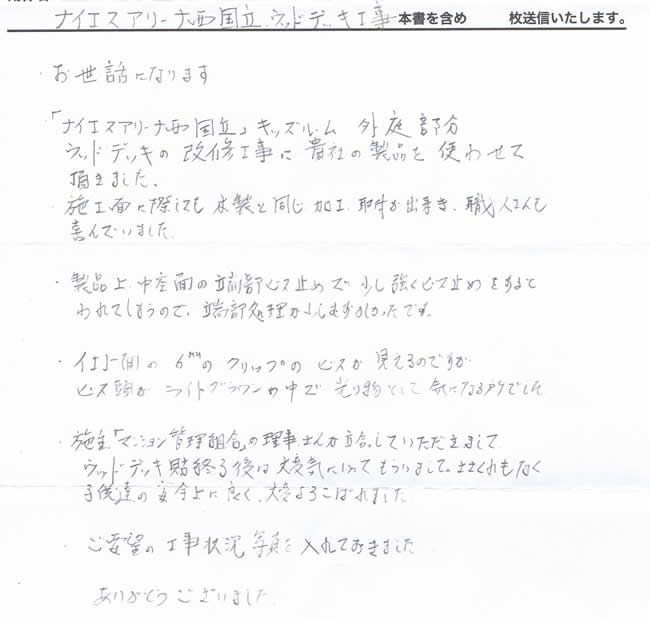 ナイスアリーナ西国立 ウッドデッキ工事 本書を含め 枚送信いたします。
・お世話になります
「ナイスアリーナ西国立」キッズルーム 外庭部分
ウッドデッキの改修工事に貴社の製品を使わせて
頂きました。
・施工面に際しても木製と同じ加工、取付が出来き、職人さんも
喜んでいました。
・製品上、中空面の端部ビス止めで少し強くビス止めをすると
われてしまうので、端部処理が少しむずかしかったです。
・イタ間の6mmのクリップのビスが見えるのですが
ビス頭がライトブラウンの中で光り物として気になるケでした
・施主「マンション管理組合」の理事さんが立合していただきまして
ウッドデッキ貼終る後は大変気に入ってもらいまして。ささくれもなく
子供達の安全上に良く、大変よろこばれました
・ご要望の工事状況写真を入れておきました
ありがとうございました